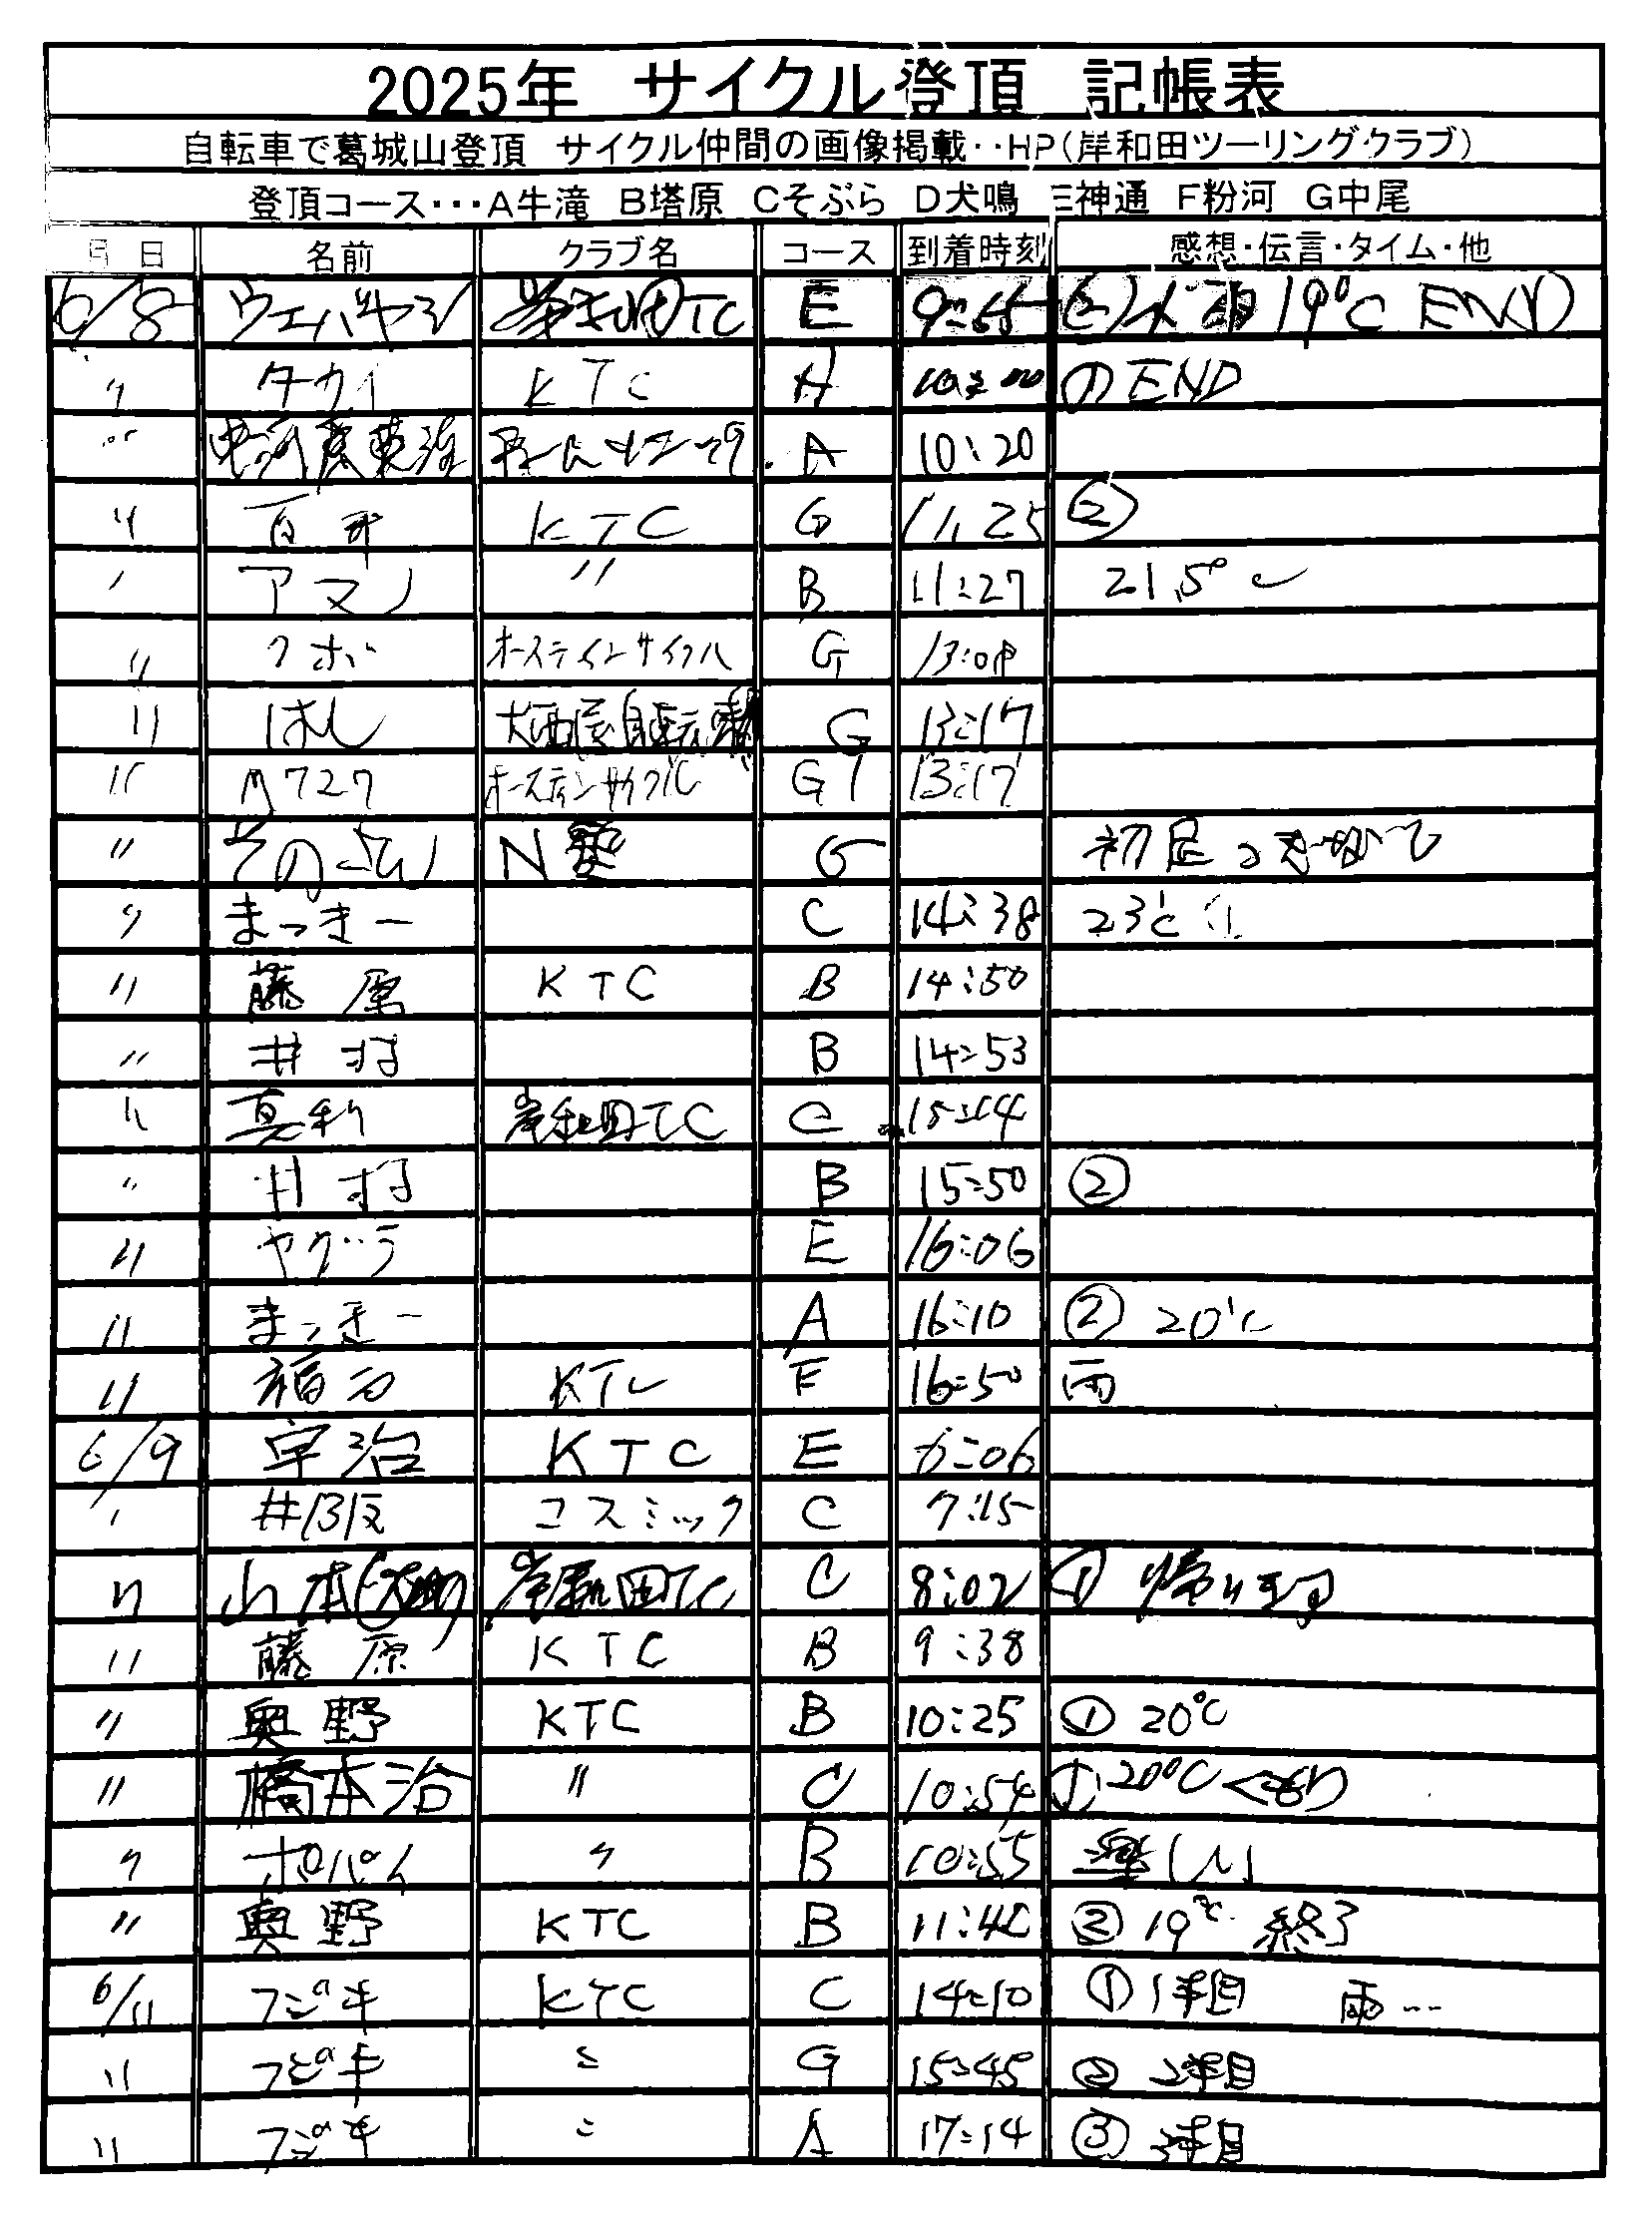 2025年 サイクル登頂 記帳表
自転車で葛城山登頂 サイクル仲間の画像掲載‥HP(岸和田ツーリングクラブ)
登頂コース‥‥A牛滝 B塔原 Cそぶら D犬鳴 E神通 F粉河 G中尾
月 日 名前 クラブ名 コース 到着時刻 感想・伝言・タイム・他
6/8 岸和田TC E 19℃ END
〃 タカイ KTC 10:00 のEND
〃 A 10:20
〃 KTC G 11:25 ②
〃 アマノ 〃 B 11:27 21.5℃
〃 クボ オースティンサイクル G
〃 はし 大西屋自転車 G 13:17
〃 M727 オースティンサイクル G 13:17
〃 N G 初足つきなし
〃 まっきー C 14:38 23℃
〃 藤原 KTC B 14:50
〃 井村 B 14:53
〃 真利 岸和田TC C
〃 井村 B 15:50 ②
〃 ヤグラ E 16:06
〃 まっきー A 16:10 ② 20℃
〃 KTC F 16:50 雨
6/9 宇治 KTC E 6:06
〃 井阪 コスミック C 7:15
〃 山本 岸和田TC C 8:02 ① 帰ります
〃 藤原 KTC B 9:38
〃 奥野 KTC B 10:25 ① 20℃
〃 橋本治 〃 C 10:54 ① 20℃ くもり
〃 ポパイ 〃 B 10:55 楽しい
〃 奥野 KTC B 11:40 ② 19℃ 終了
6/11 フジキ KTC C 14:10 ① 1本目 雨…
〃 フジキ 〃 G 15:45 ② 2本目
〃 フジキ 〃 A 17:14 ③ 3本目